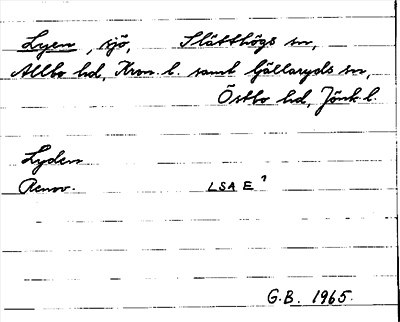 Lyen, sjö, Slätthögs sn,
Allbo hd, Kron. l. samt Gällaryds sn,
Östbo hd, Jönk. l.
Lyden
Renov. LSA E 1
G.B. 1965.